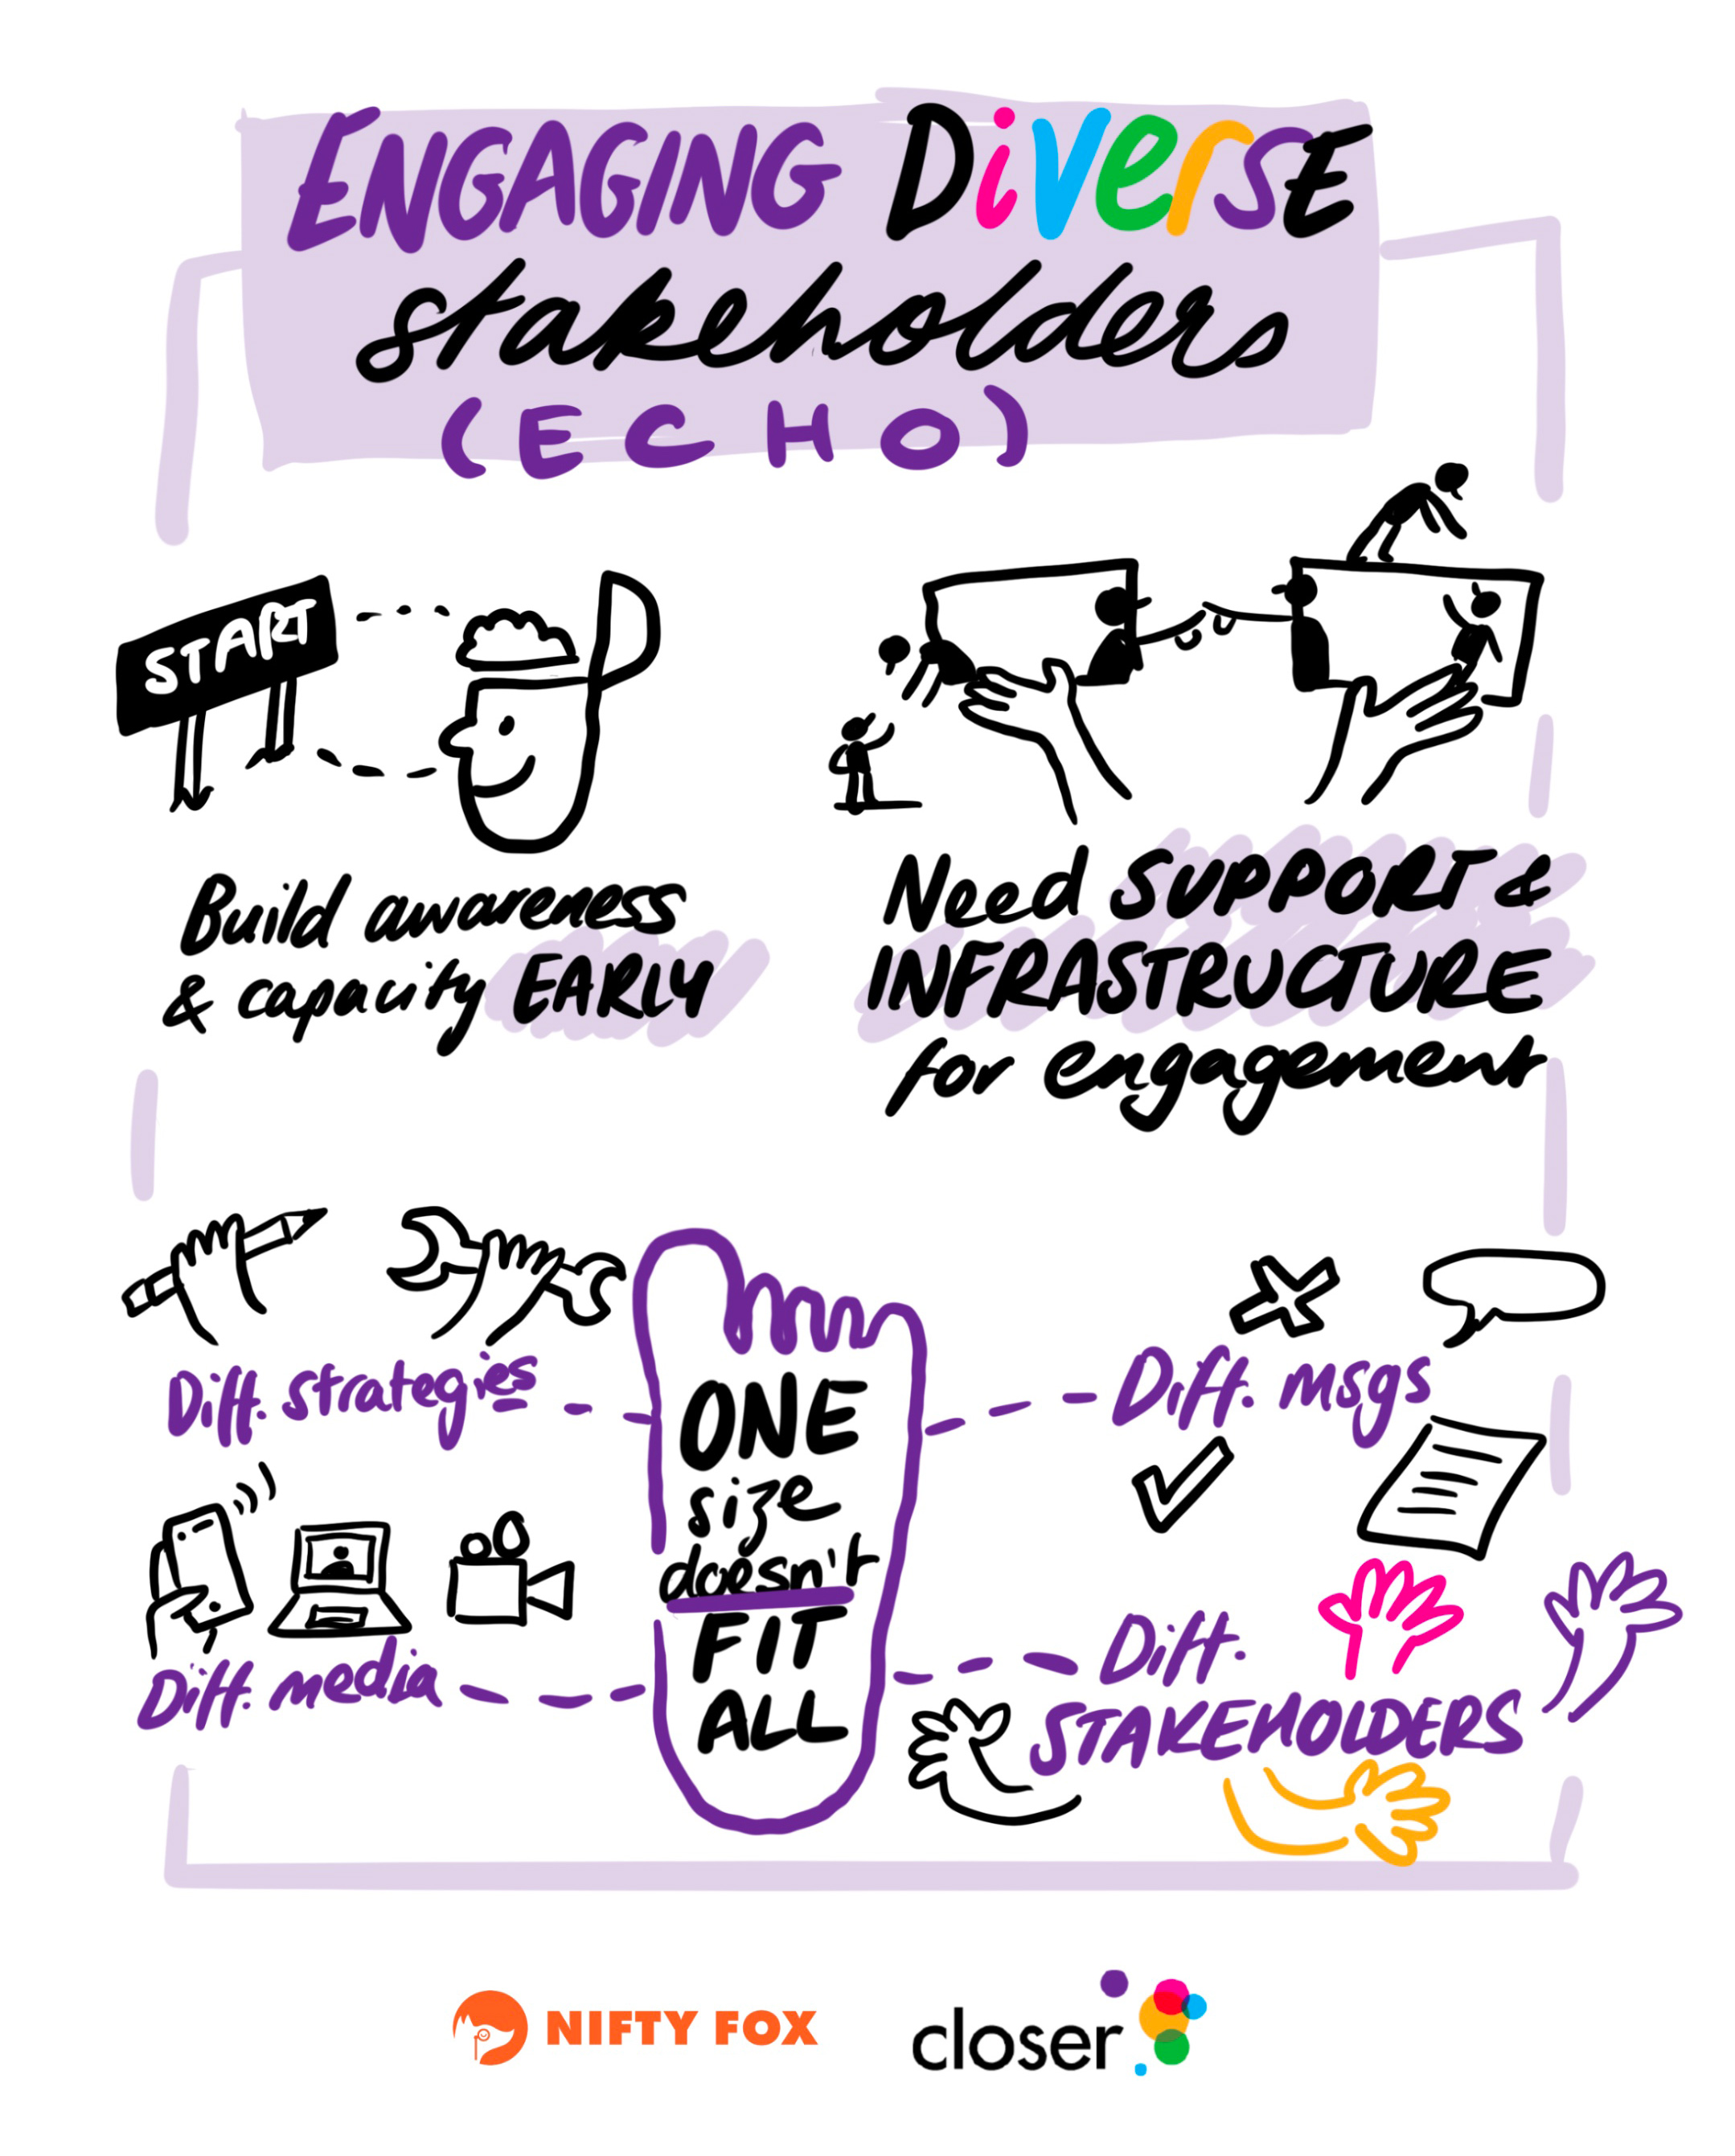 ENGAGING DiVerSE
stakeholders
(ECHO)
START
Build awareness
& capacity EARLY
Need SUPPORT &
INFRASTRUCTURE
for engagement
Diff. strategies
Diff. media
ONE
size
doesn't
FIT
ALL
Diff. msgs
Diff.
STAKEHOLDERS
NIFTY FOX
closer